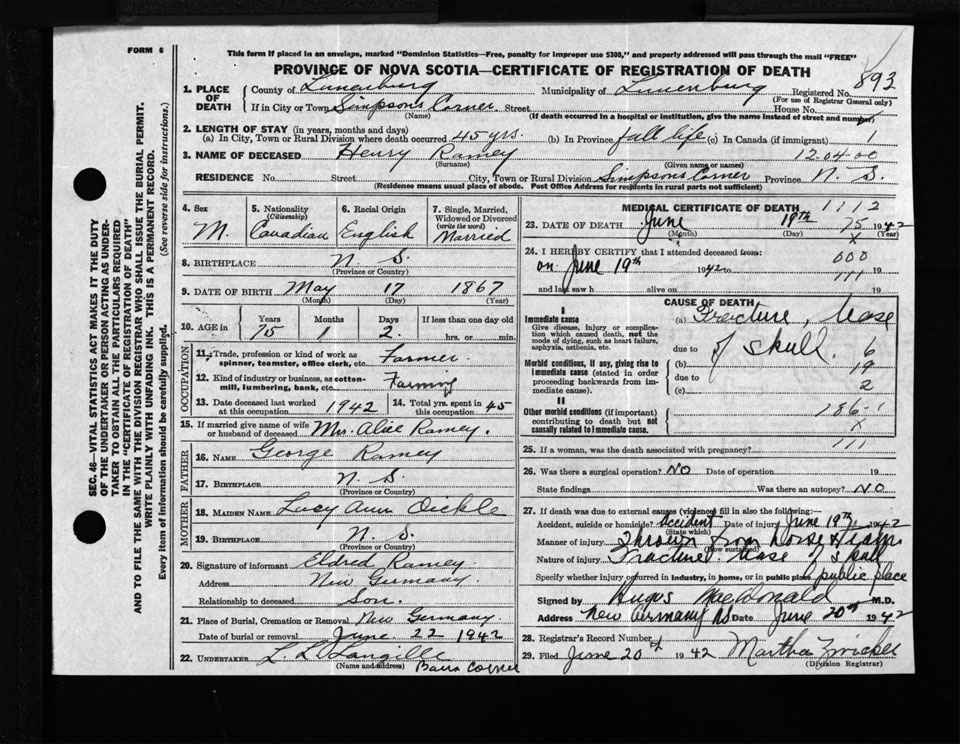 FORM 6
This form if placed in an envelope, marked "Dominion Statistics—Free, penalty for improper use $300," and properly addressed will pass through the mail "FREE"
PROVINCE OF NOVA SCOTIA—CERTIFICATE OF REGISTRATION OF DEATH
893
1. PLACE OF DEATH County of Lunenburg Municipality of Lunenburg Registered No.
(For use of Registrar General only)
If in City or Town Simpsons Corner Street House No.
(Name) (If death occurred in a hospital or institution, give the name instead of street and number)
2. LENGTH OF STAY (in years, months and days)
(a) In City, Town or Rural Division where death occurred 45 yrs. (b) In Province full life (c) In Canada (if immigrant) 1
3. NAME OF DECEASED Henry Ramey 12-04-00
(Surname) (Given name or names)
RESIDENCE No. Street City, Town or Rural Division Simpsons Corner Province N. S.
(Residence means usual place of abode. Post Office Address for residents in rural parts not sufficient)
4. Sex M.
5. Nationality (Citizenship) Canadian
6. Racial Origin English
7. Single, Married, Widowed or Divorced (write the word) Married
8. BIRTHPLACE N S.
(Province or Country)
9. DATE OF BIRTH May 17 1867
(Month) (Day) (Year)
10. AGE in Years 75 Months 1 Days 2. If less than one day hrs. or min.
OCCUPATION
11. Trade, profession or kind of work as spinner, teamster, office clerk, etc. Farmer.
12. Kind of industry or business, as cotton-mill, lumbering, bank, etc. Farming
13. Date deceased last worked at this occupation 1942 14. Total yrs. spent in this occupation 45
15. If married give name of wife or husband of deceased Mrs. Alice Ramey.
FATHER
16. NAME George Ramey
17. BIRTHPLACE N S.
(Province or Country)
MOTHER
18. MAIDEN NAME Lucy Ann Oickle
19. BIRTHPLACE N S.
(Province or Country)
20. Signature of informant Eldred Ramey
Address New Germany.
Relationship to deceased Son.
21. Place of Burial, Cremation or Removal New Germany
Date of burial or removal June. 22 1942
22. UNDERTAKER L. D. Langille
(Name and address) Barss Corner
MEDICAL CERTIFICATE OF DEATH 1112
23. DATE OF DEATH June 19th 75 1942
(Month) (Day) x (Year)
24. I HEREBY CERTIFY that I attended deceased from:
000
on June 19th 1942 to 19
111
and last saw h alive on 19
CAUSE OF DEATH
I
Immediate cause
Give disease, injury or complication which caused death, not the mode of dying, such as heart failure, asphyxia, asthenia, etc.
(a) Fracture, base
due to of skull. 6
Morbid conditions, if any, giving rise to immediate cause (stated in order proceeding backwards from immediate cause).
(b) 19
due to
(c) 2
II
Other morbid conditions (if important) contributing to death but not causally related to immediate cause.
186
x
25. If a woman, was the death associated with pregnancy? 111
26. Was there a surgical operation? No Date of operation 19
State findings Was there an autopsy? No
27. If death was due to external causes (violence) fill in also the following:
Accident, suicide or homicide? Accident Date of injury June 19th 1942
(State which)
Manner of injury Thrown from horse & team
(How sustained)
Nature of injury Fracture base of skull
Specify whether injury occurred in industry, in home, or in public place public place
Signed by Angus MacDonald M.D.
Address New Germany NS Date June 20th 1942
28. Registrar's Record Number
29. Filed June 20th 1942 Martha Zwicker
(Division Registrar)
SEC. 46—VITAL STATISTICS ACT MAKES IT THE DUTY
OF THE UNDERTAKER OR PERSON ACTING AS UNDER-
TAKER TO OBTAIN ALL THE PARTICULARS REQUIRED
IN THE "CERTIFICATE OF REGISTRATION OF DEATH"
AND TO FILE THE SAME WITH THE DIVISION REGISTRAR WHO SHALL ISSUE THE BURIAL PERMIT.
WRITE PLAINLY WITH UNFADING INK. THIS IS A PERMANENT RECORD.
Every item of information should be carefully supplied. (See reverse side for instructions.)